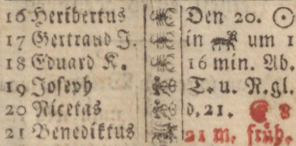 16 Heribertus Den 20. ☉
17 Gertraud J. in um 1
18 Eduard K. 16 min. Ab.
19 Joseph T. u. R. gl.
20 Nicetas d. 21. ☾ 8
21 Benediktus 21 m. früh.